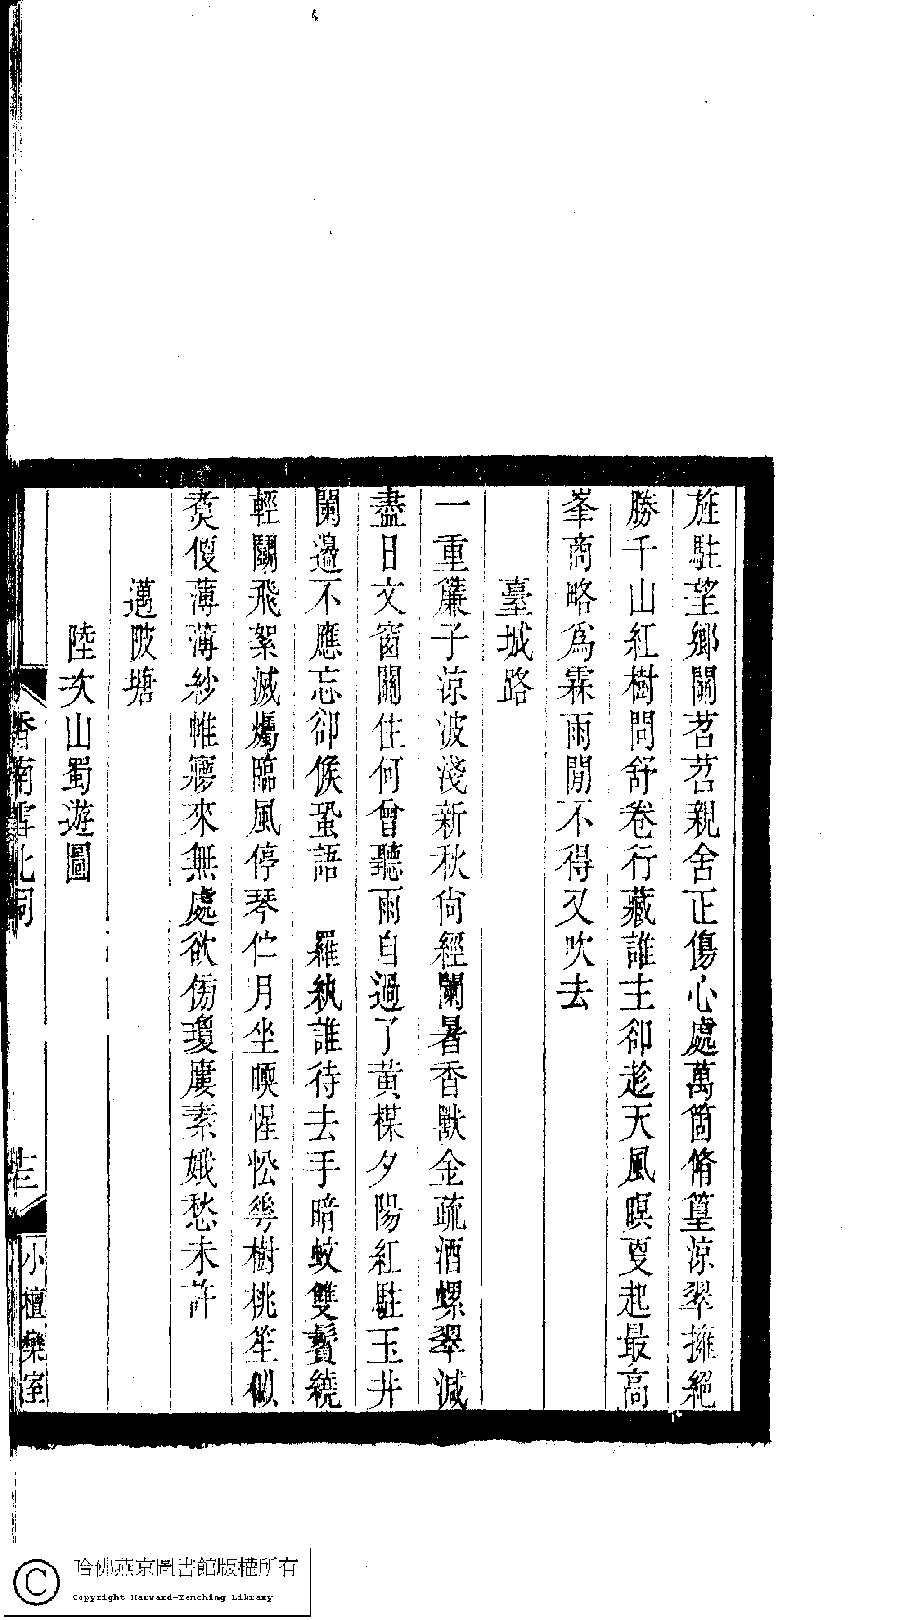 旌駐望鄉關苕苕親舍正傷心處萬箇脩篁涼翠擁絕
勝千山紅樹問舒卷行藏誰主卻趁天風暝夏起最高
峯商略為霖雨閒不得又吹去
臺城路
一重簾子涼波淺新秋尙經闌暑香獸金疏酒螺翠減
盡日文窗關住何曾聽雨自過了黃楳夕陽紅駐玉井
闌邊不應忘卻候蛩語　羅紈誰待去手暗蚊雙鬢繞
輕關飛絮滅燭臨風停琴伫月坐暝惺忪夢樹桃笙似
煑便薄薄紗帷寱來無處欲傍瓊廔素娥愁未許
邁陂塘
陸次山蜀遊圖
香南雪北詞
十二
小檀欒室
哈佛燕京圖書館版權所有
Copyright Harvard-Yenching Library